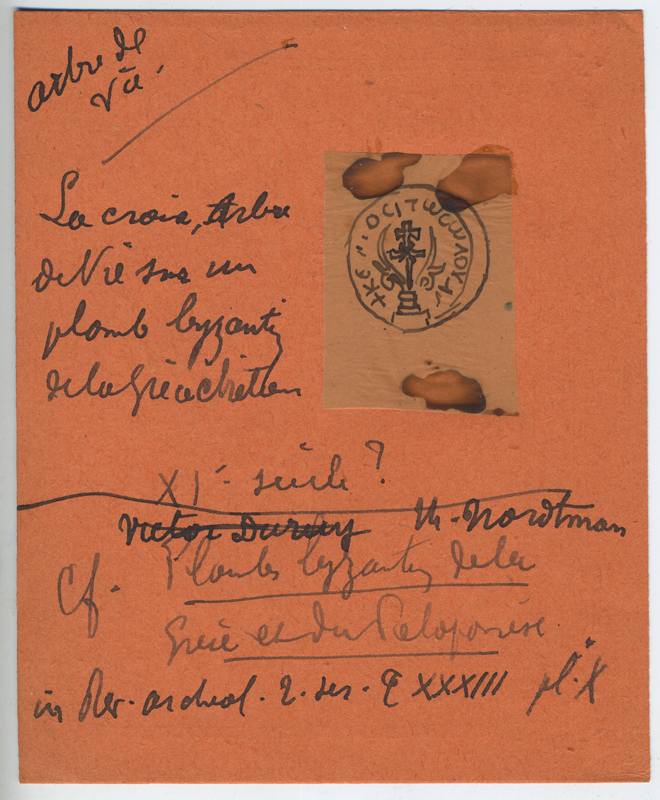 arbre de
Vie.
La croix, Arbre
de Vie sur un
plomb byzantin
de la Grèce chrétienne
XIe siècle ?
Victor Duruy th. Mordtman
Cf. Plombs byzantins de la
Grèce et du Péloponèse
in Rev. archeol. 2. ser. T XXXIII pl. X